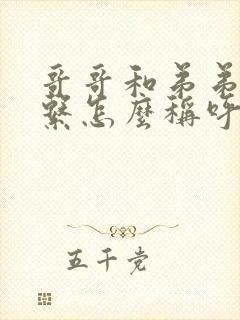 哥哥和弟弟
繫怎麼稱呼
五千党